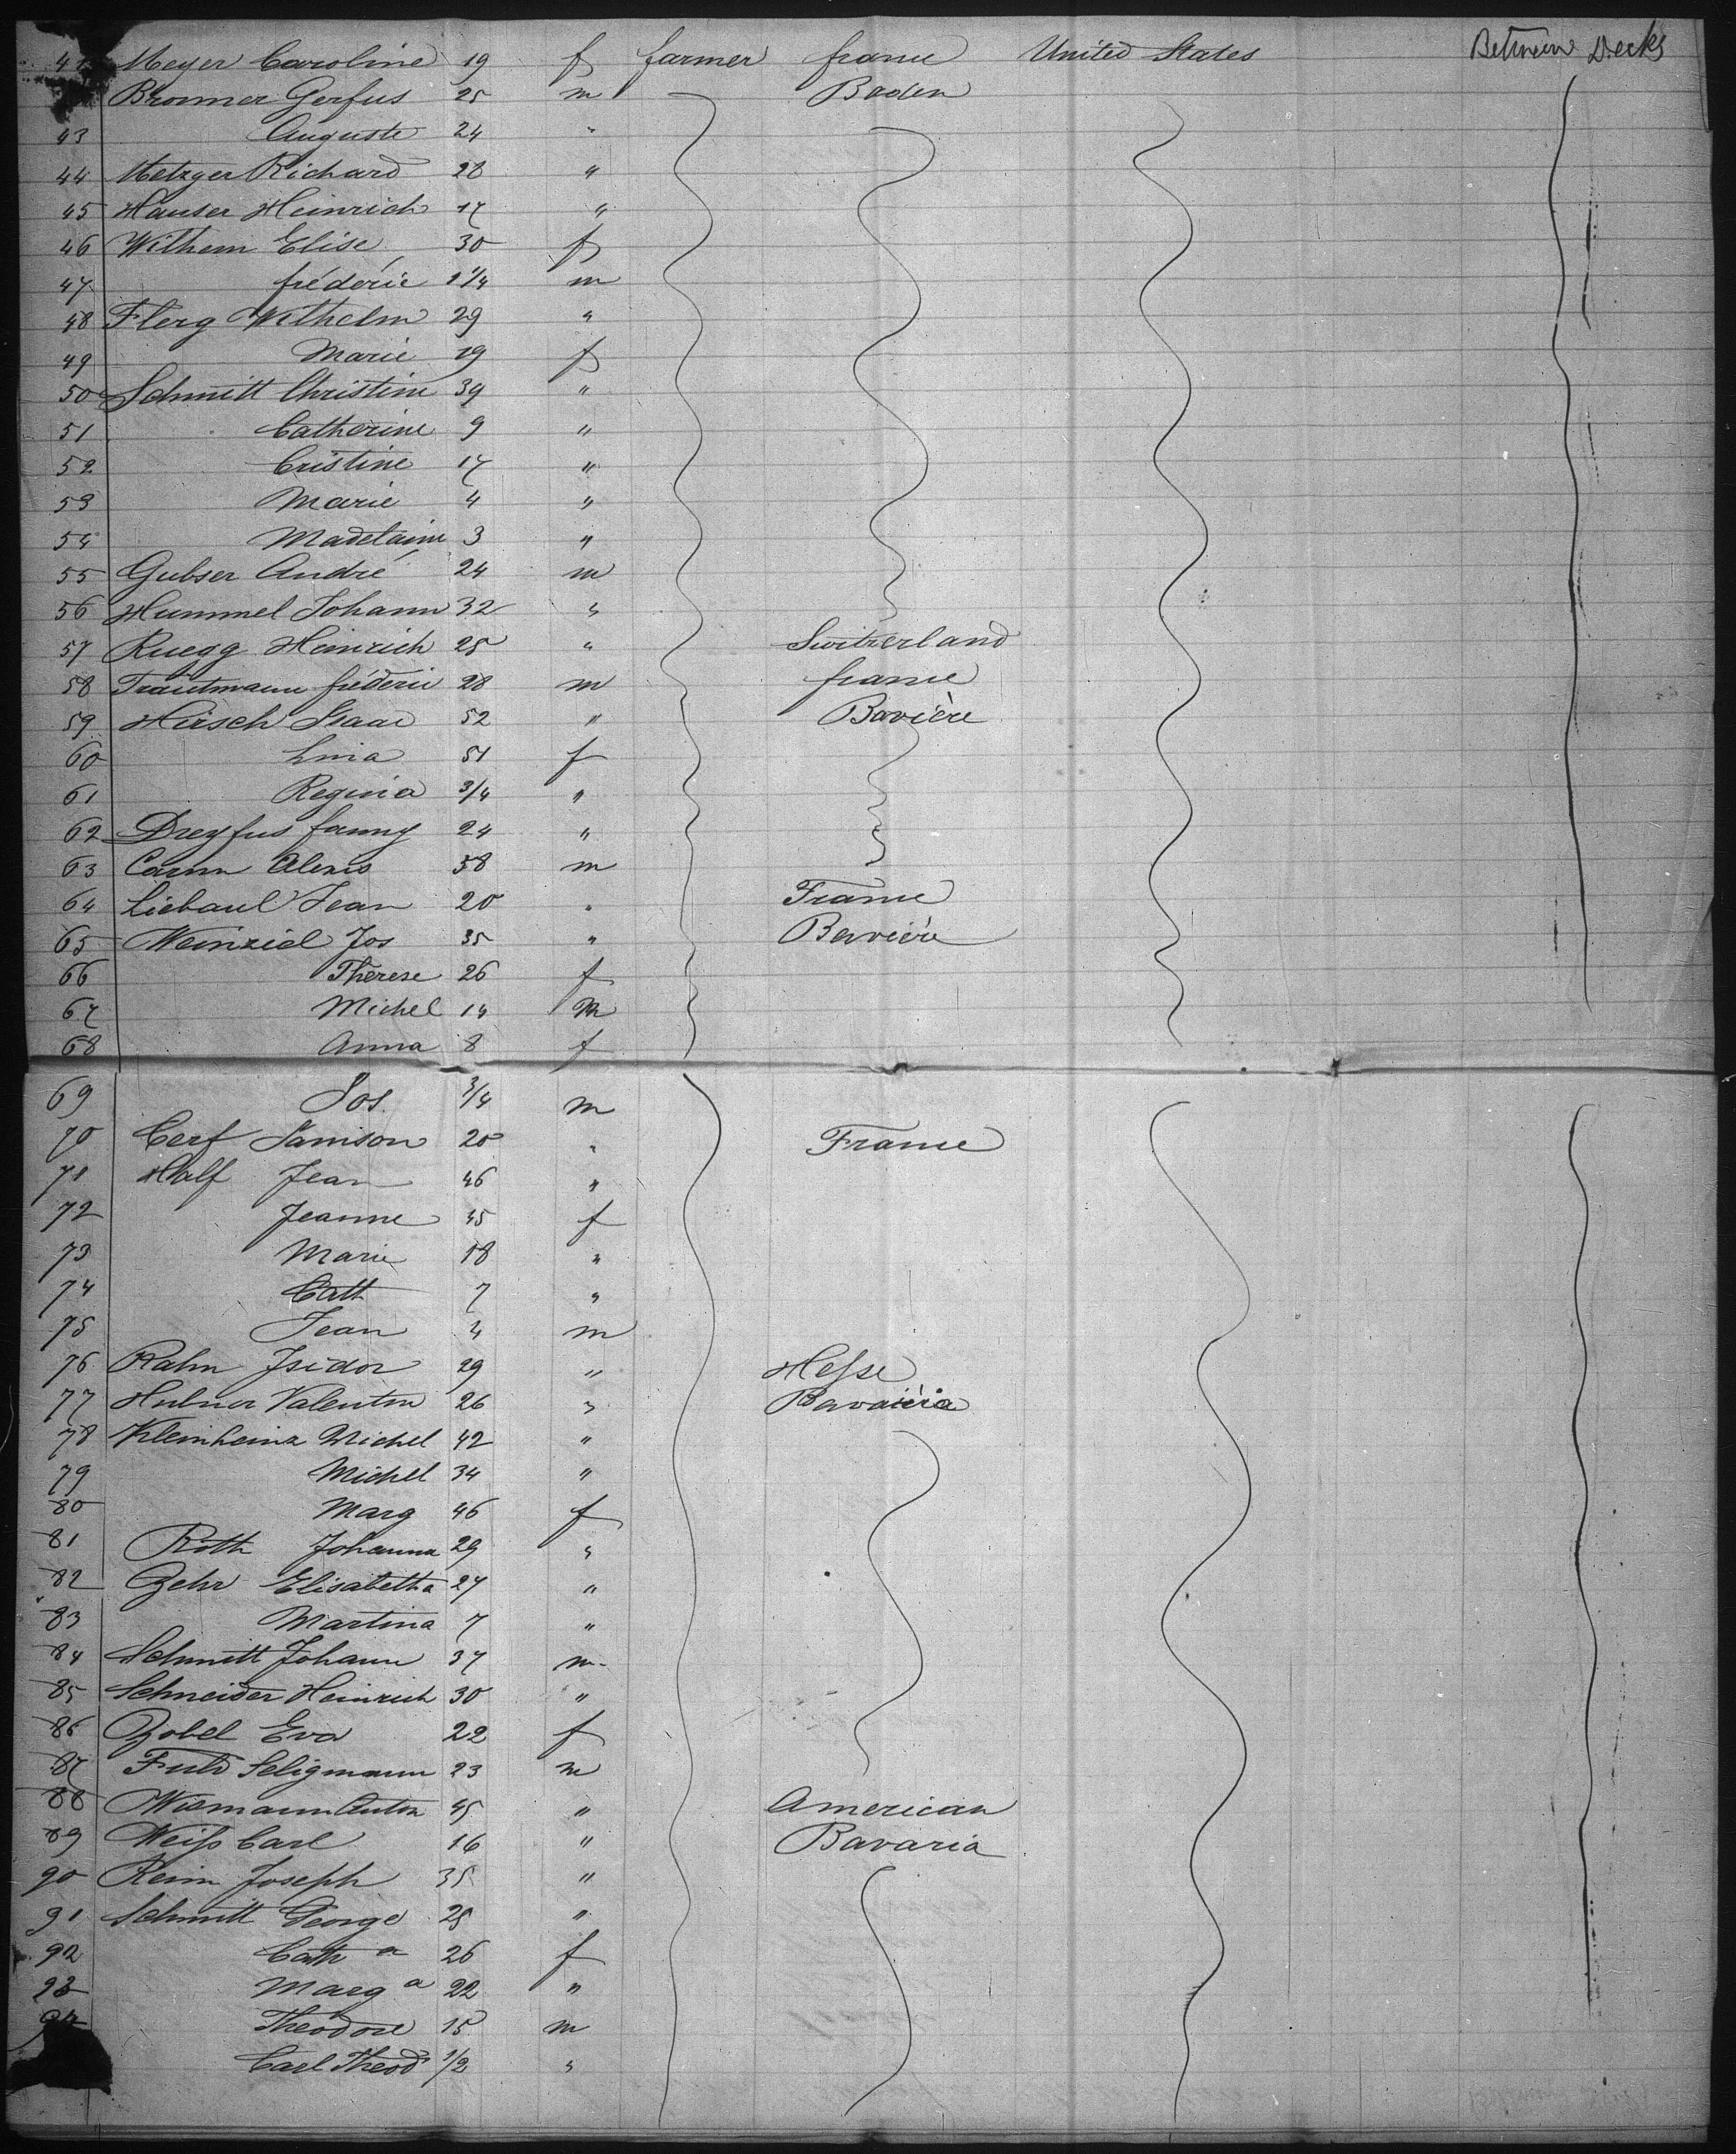 41 Meyer Caroline 19 f farmer france United States Between Decks
Bronner Gerfus 25 m Baden
43 Auguste 24 "
44 Metzger Richard 28 "
45 Hauser Heinrich 17 "
46 Wilhem Elise 30 f
47 frédéric 1 1/4 m
48 Flerg Wilhelm 29 "
49 Marie 29 f
50 Schmitt Christine 39 "
51 Catherine 9 "
52 Cristine 17 "
53 Marie 4 "
54 Madelaine 3 "
55 Gubser André 24 m
56 Hummel Johann 32 "
57 Ruegg Heinrich 25 " Switzerland
58 Trautmann frédéric 28 m france
59 Hirsch Isaac 52 " Bavière
60 51 f
61 Regina 3/4 "
62 Dreyfus fanny 24 "
63 Alexis 58 m
64 Liebaul Jean 20 " France
65 Weinziel Jos 35 " Bavière
66 Therese 26 f
67 Michel 14 m
68 Anna 8 f
69 Jos. 3/4 m
70 Cerf Samson 20 " France
71 Half Jean 46 "
72 Jeanne 45 f
73 Marie 18 "
74 Cath 7 "
75 Jean 4 m
76 Kahn Isidor 29 " Hesse
77 Hubner Valentin 26 " Bavaiéra
78 Kleinheinz Michel 42 "
79 Michel 34 "
80 Marg 46 f
81 Roth Johanna 29 "
82 Zehr Elisabetha 27 "
83 Martina 7 "
84 Schmitt Johann 37 m
85 Schneider Heinrich 30 "
86 Zobel Eva 22 f
87 Fuld Seligmann 23 m
88 Wiemann Anton 45 " American
89 Weiss Carl 16 " Bavaria
90 Reim Joseph 35 "
91 Schmitt George 25 "
92 Cath a 26 f
93 Marg a 22 "
94 Theodore 15 m
Carl Theod 1/2 "